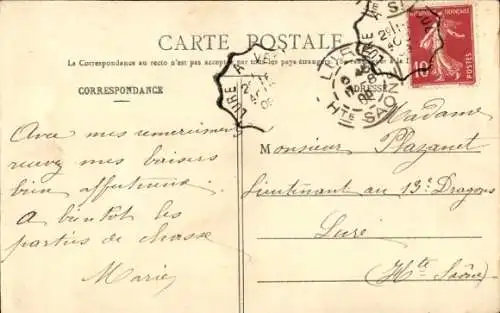 CARTE POSTALE
La Correspondance au recto n'est pas acceptée par tous les pays étrangers.
CORRESPONDANCE
ADRESSE
RÉPUBLIQUE FRANÇAISE
POSTES
10
LURE A
Hte SAÔNE
Avec mes remerciements
recevez mes baisers
bien affectueux.
A bientôt les
parties de chasse
Marie
Madame
Monsieur Plazanet
Lieutenant au 13e Dragons
Lure
(Hte Saône)